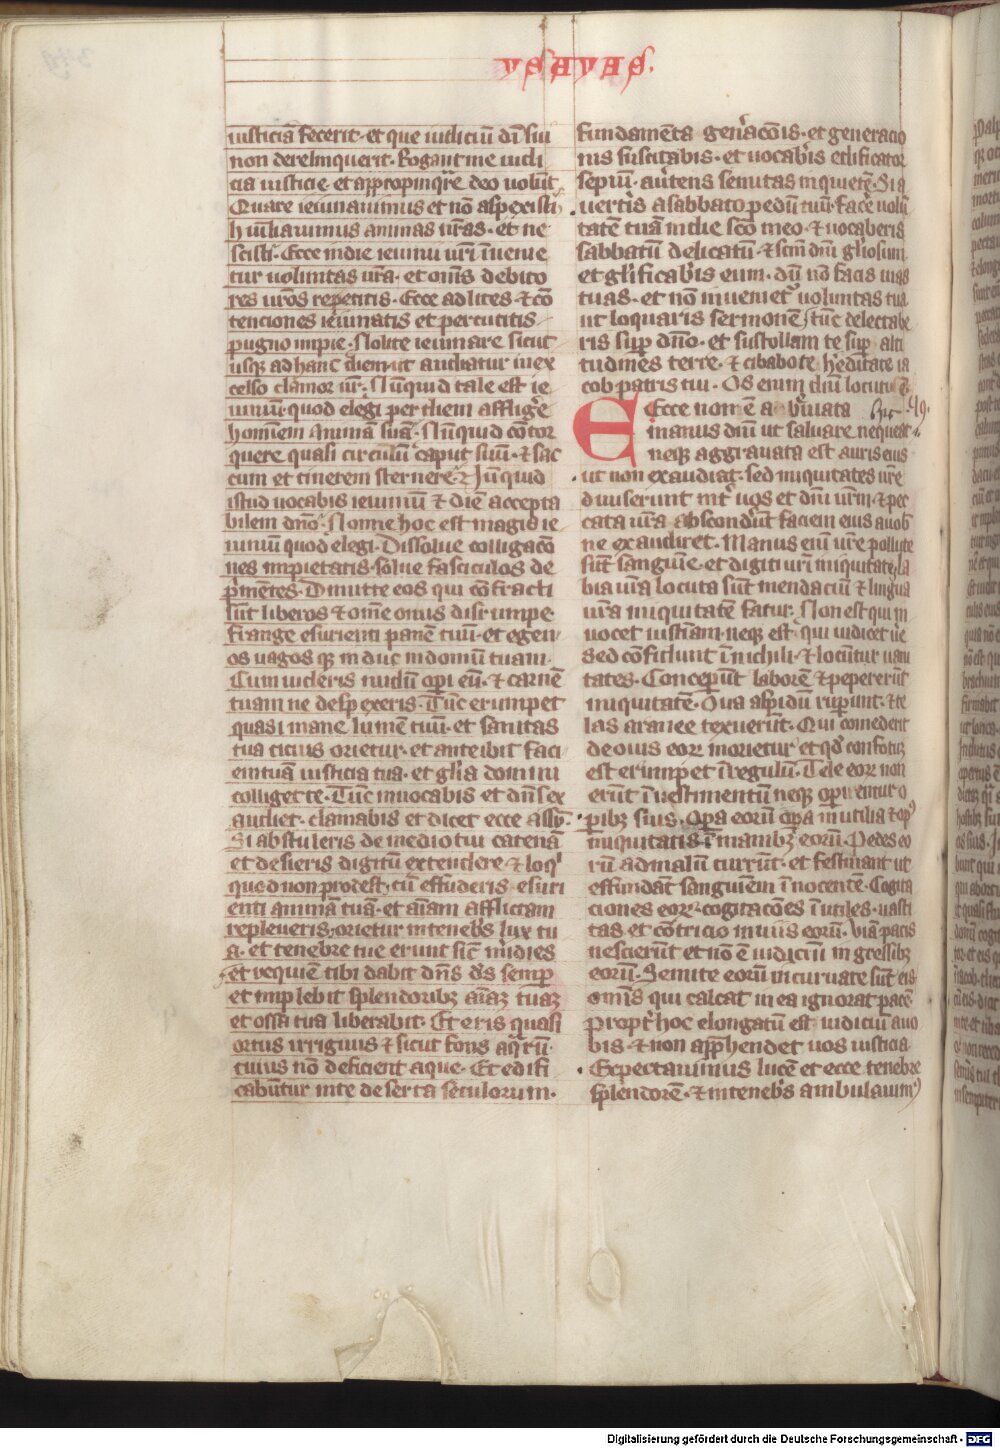 ysayas.
iusticiā fecerit· et que iudiciū dī sui
non dereliquerit. Rogant me iudi
cia iusticie· et appropinq̄re deo uolūt
Quare ieiunauimus et nō aspexisti
hūiliauimus animas nr̄as· et ne
scisti· Ecce in die ieiunii ur̄i īuenie
tur uoluntas ur̄a· et om̄s debito
res ur̄os repetitis· Ecce ad lites ⁊ cō
tenciones ieiunatis et percutitis
pugno impie· Nolite ieiunare sicut
usq; ad hanc diem· ut audiatur in ex
celso clamor ur̄· Nūquid tale est ie
iuniū· quod elegi per diem affligere
hominem animā suā· Nūquid cōtor
quere quasi circulū caput suū· ⁊ sac
cum et cinerem sternere· Nūquid
istud uocabis ieiuniū ⁊ diē accepta
bilem dn̄o· Nonne hoc est magis ie
iuniū quod elegi· Dissolue colligacō
nes impietatis· solue fasciculos de
p̄mentes· Dimitte eos qui cōfracti
sūt liberos ⁊ om̄e onus disrumpe·
frange esurienti panē tuū· et egen
os uagos q; induc in domū tuam·
Cum uideris nudū op̄i eū· ⁊ carnē
tuam ne desp̄exeris· Tūc erumpet
quasi mane lumē tuū· et sanitas
tua cicius orietur· et anteibit faci
em tuam iusticia tua· et gl̄ia domini
colliget te· Tūc inuocabis et dn̄s ex
audiet· clamabis et dicet ecce assū·
Si abstuleris de medio tui catenā
et desieris digitū extendere· ⁊ loq̄
quod non prodest· cū effuderis esuri
enti animā tuā· et aīam afflictam
repleueris· orietur in tenebris lux tu
a· et tenebre tue erunt sic̄ m̄idies
et requiē tibi dabit dn̄s ds̄ semp
et implebit splendoribȝ aīaȝ tuaȝ
et ossa tua liberabit· Et eris quasi
ortus irriguus ⁊ sicut fons aq̄rū·
cuius nō deficient aque· Et edifi
cabūtur in te deserta seculorum·
fundamēta gen̄acōis· et generacio
nis suscitabis· et uocab̄is edificator
sepiū· au̍tens semitas iniquietē· Si a
uertis a sabbato pedū tuū· facē uolū
tatē tuā in die scō meo· ⁊ uocaberis
sabbatū delicatū· ⁊ sc̄m dn̄i gl̄iosum
et gl̄ificab̄is eum· dū nō facis uias
tuas· et nō inueniet̄ uoluntas tua
ut loquaris sermonē· tūc delectabe
ris sup̄ dn̄o· et sustollam te sup̄ alti
tudines terre· ⁊ cibabo te hereditate ia
cob patris tui· Os enim dn̄i locutū ē·
Ecce non ē abbreuiata
manus dn̄i ut saluare nequeat
neq; aggrauata est auris eius
ut non exaudiat· sed iniquitates ur̄e
diuiserunt int̄ uos et dm̄ ur̄m· ⁊ pec
cata ur̄a absconderūt faciem eius a uob̄
ne exaudiret· Manus eni ur̄e pollute
sūt sanguīe· et digiti ur̄i iniquitate· la
bia ur̄a locuta sūt mendaciū ⁊ lingua
ur̄a iniquitatē fatur· Non est qui in
uocet iusticiam· neq; est qui iudicet ue̅
sed cōfidunt ī nichili· ⁊ locūtur uani
tates· Conceperūt laborē ⁊ pepererūt
iniquitatē· Oua aspidū ruperunt· ⁊ te
las aranee texuerūt· Qui comederit
de ouis eoꝝ morietur et qd̄ confotū
est erumpet ī regulū· Tele eoꝝ non
erūt ī uestimentū neq; operientur o
p̄ibȝ suis· Opera eorū opera inutilia ⁊ op̄
iniquitatis ī manibȝ eorū· Pedes eo
rū ad malū currūt· et festinant ut
effundāt sanguinem īnocentē· Cogita
ciones eoꝝ· cogitacōes ī utiles· uasti
tas et cōtricio in uiis eorū· Viā pacis
nescierūt et nō ē iudiciū in gressibȝ
eorū· Semite eorū incuruate sūt eis
omīs qui calcat in ea ignorat pacē
Propt̄ hoc elongatū est iudiciū a uo
bis· ⁊ non app̄hendet uos iusticia
Expectauimus lucē et ecce tenebre
splendorē· ⁊ in tenebris ambulauim̄
Digitalisierung gefördert durch die Deutsche Forschungsgemeinschaft - DFG